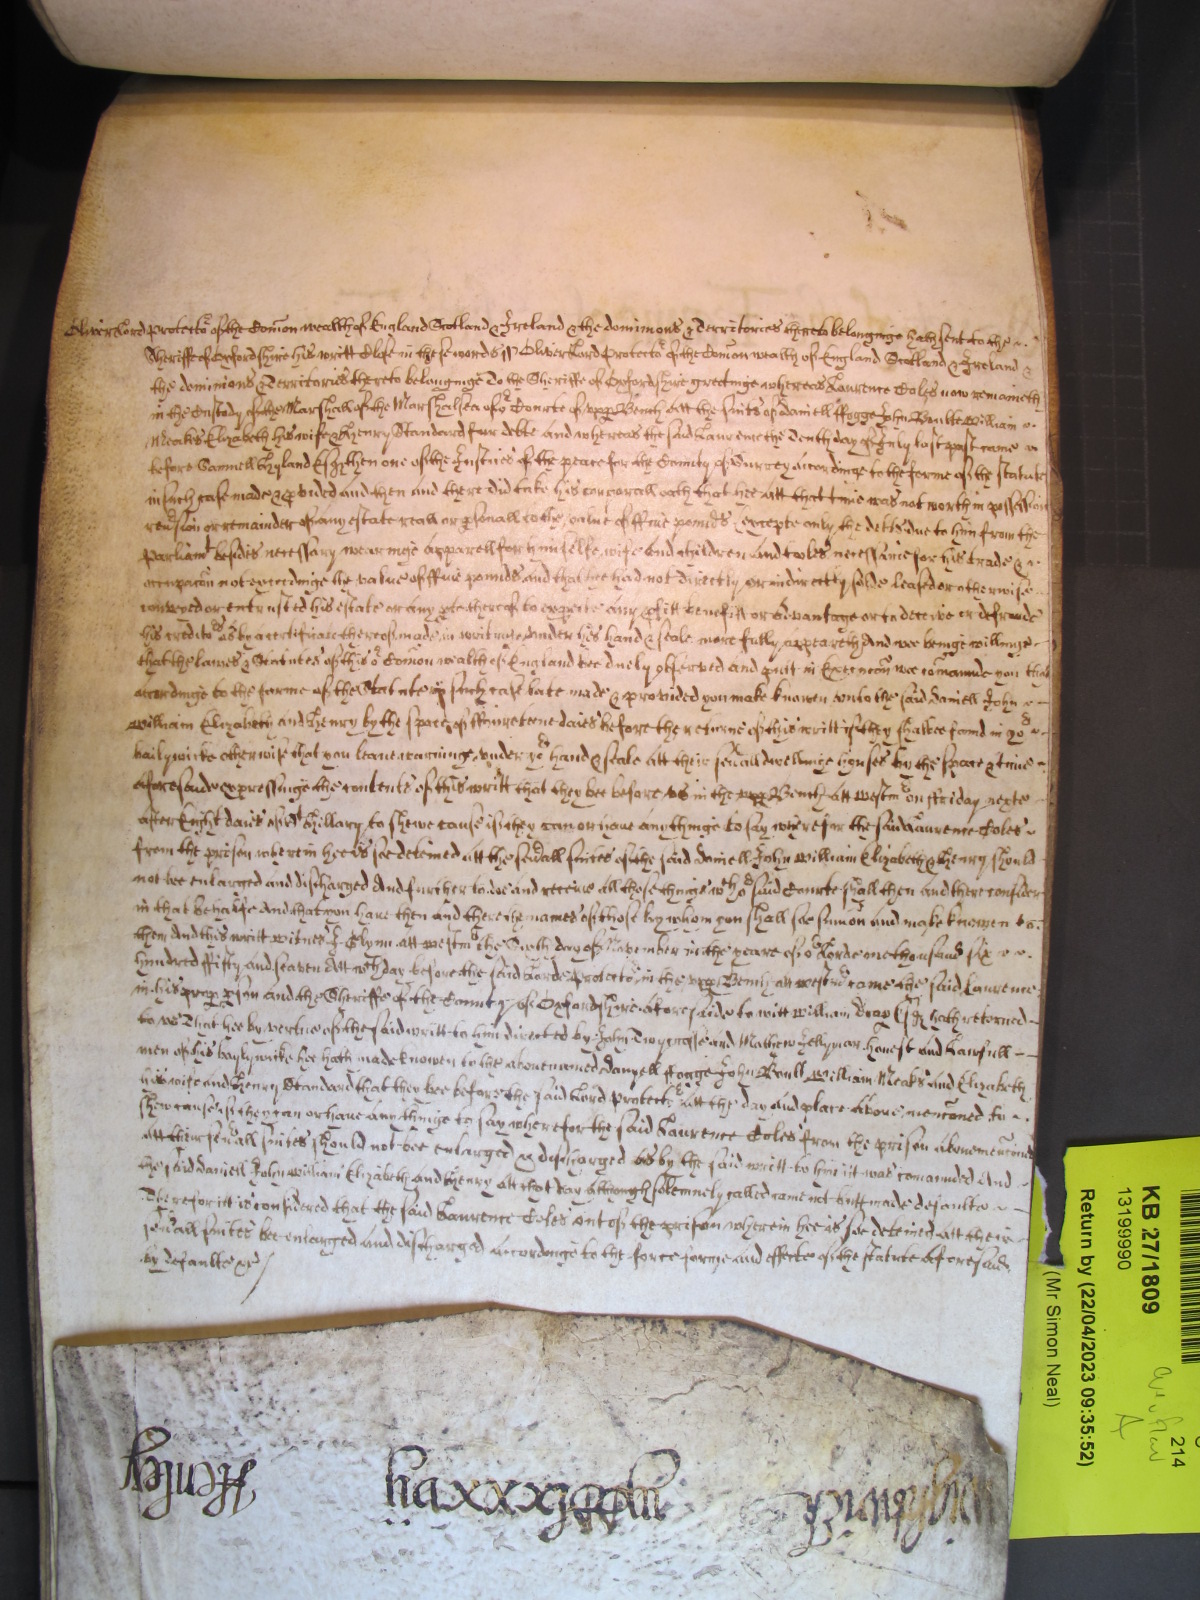 Oliver Lord Protector of the Comon wealth of England Scotland & Ireland & the dominions & Territories thereto belonginge hath sent to the
Sheriffe of Oxfordshire his writt Close in these words ss Oliver Lord Protector of the Comon wealth of England Scotland & Ireland &
the dominions & Territories thereto belonginge To the Sheriffe of Oxfordshire greetinge whereas Laurence Coles now remaineth
in the Custody of the Marshall of the Marshalsea of or Courte of upp Bench att the suits of Daniell ffogge John Boulte William
Meaks Elizabeth his wife & Henry Standard for debte and whereas the said Laurence the Tenth day of July last past came
before Samuell Hyland Esqr then one of the Justices of the peace for the County of Surrey accordinge to the forme of the statute
in such case made & pvided and then and there did take his corporall oath that hee att that time was not worth in possession
revsion or remainder of any estate reall or psonall to the value of ffive pounds excepte only the debts due to him from the
Parliamt besides necessary wearinge apparell for himselfe, wife and children and tooles necessarie for his trade &
occupacon not exceedinge the value of ffive pounds and that hee had not directly or indirectly solde leased or otherwise
conveyed or entrusted his estate or any pte thereof to expecte any pfitt benefitt or advantage or to deceive or defraude
his creditors as by a certificate thereof made in writinge under his hand & seale more fully appeareth And wee beinge willinge
that the lawes & Statutes of this or Comon wealth of England bee duely observed and putt in Execucon wee comaunde you that
accordinge to the forme of the Statute in such case late made & provided you make knowen unto the said Daniell John
William Elizabeth and Henry by the space of ffourteene daies before the returne of this writt if they shalbee found in yor
bailywicke otherwise that you leave warninge under yor hand & seale att their sevall dwellinge houses by the space & time
aforesaide expressinge the contents of this writt that they bee before us in the upp Bench att Westmr on ffriday nexte
after Eight daies of St Hillary to shewe cause if they can or have any thinge to say wherefor the said Laurence Coles
from the prison wherein hee is soe deteined att the sevall suites of the said Daniell John William Elizabeth & Henry should
not bee enlarged and discharged And further to doe and receive all those things wch or said Courte shall then and there consider
in that behalfe And that you have then and there the names of those by whom you shall soe sumon and make knowen to
them And this writt witnes J Glynn att Westmr the Sixth day of November in the yeare of or Lorde one thousand six
hundred ffifty and seaven Att wch day before the said Lorde Protector in the upp Bench att Westmr came the said Laurence
in his pper pson and the Sheriffe of the County of Oxfordshire aforesaide to witt William Draper Esqr hath returned
to us That hee by vertue of the said writt to him directed by John and Mathew Jellyman honest and lawfull
men of his baylywike hee hath made knowen to the abovenamed Danyell ffogge John Boult William Meaks and Elizabeth
his wife and Henry Standard that they bee before the said Lord Protector att the day and place above mencioned to
shew cause if they can or have any thinge to say wherefor the said Laurence Coles from the prison abovemencond
att their sevall suites should not bee enlarged & discharged as by the said writt to him itt was comaunded And
the said Daniell John William Elizabeth and Henry att that day although solemnely called came not butt made defaulte
Therefor itt is considered that the said Laurence Coles out of the prison wherein hee is soe deteined att their
sevall suites bee enlarged and discharged accordinge to the force forme and effecte of the statute aforesaid
by defaulte &c
KB 27/1809
13199990
Return by (22/04/2023 09:35:52)
(Mr Simon Neal)
214
A